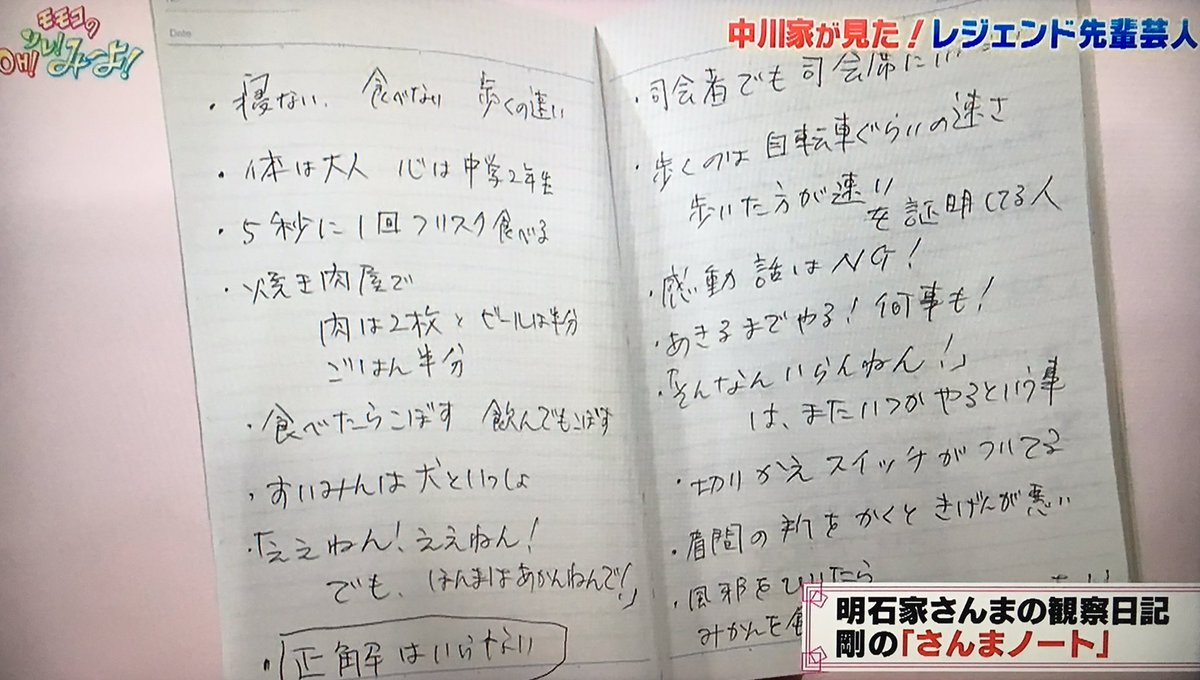 モモコの
OH!ソレ!み〜よ!
中川家が見た!レジェンド先輩芸人
Date
・寝ない、食べない 歩くの速い
・体は大人 心は中学2年生
・5秒に1回フリスク食べる
・焼き肉屋で
肉は2枚と ビールは半分
ごはん半分
・食べたらこぼす 飲んでもこぼす
・すいみんは犬といっしょ
・「ええねん!ええねん!
でも、ほんまはあかんねんで!」
・正解はいらない
・司会者でも司会席に
・歩くのは自転車ぐらいの速さ
歩いた方が速い
を証明してる人
・感動話はNG!
・あきるまでやる!何事も!
・「そんなんいらんねん!」
は、またいつかやるという事
・切りかえスイッチがついてる
・眉間の所をかくときげんが悪い
・風邪をひいたら
みかんを食
明石家さんまの観察日記
剛の「さんまノート」